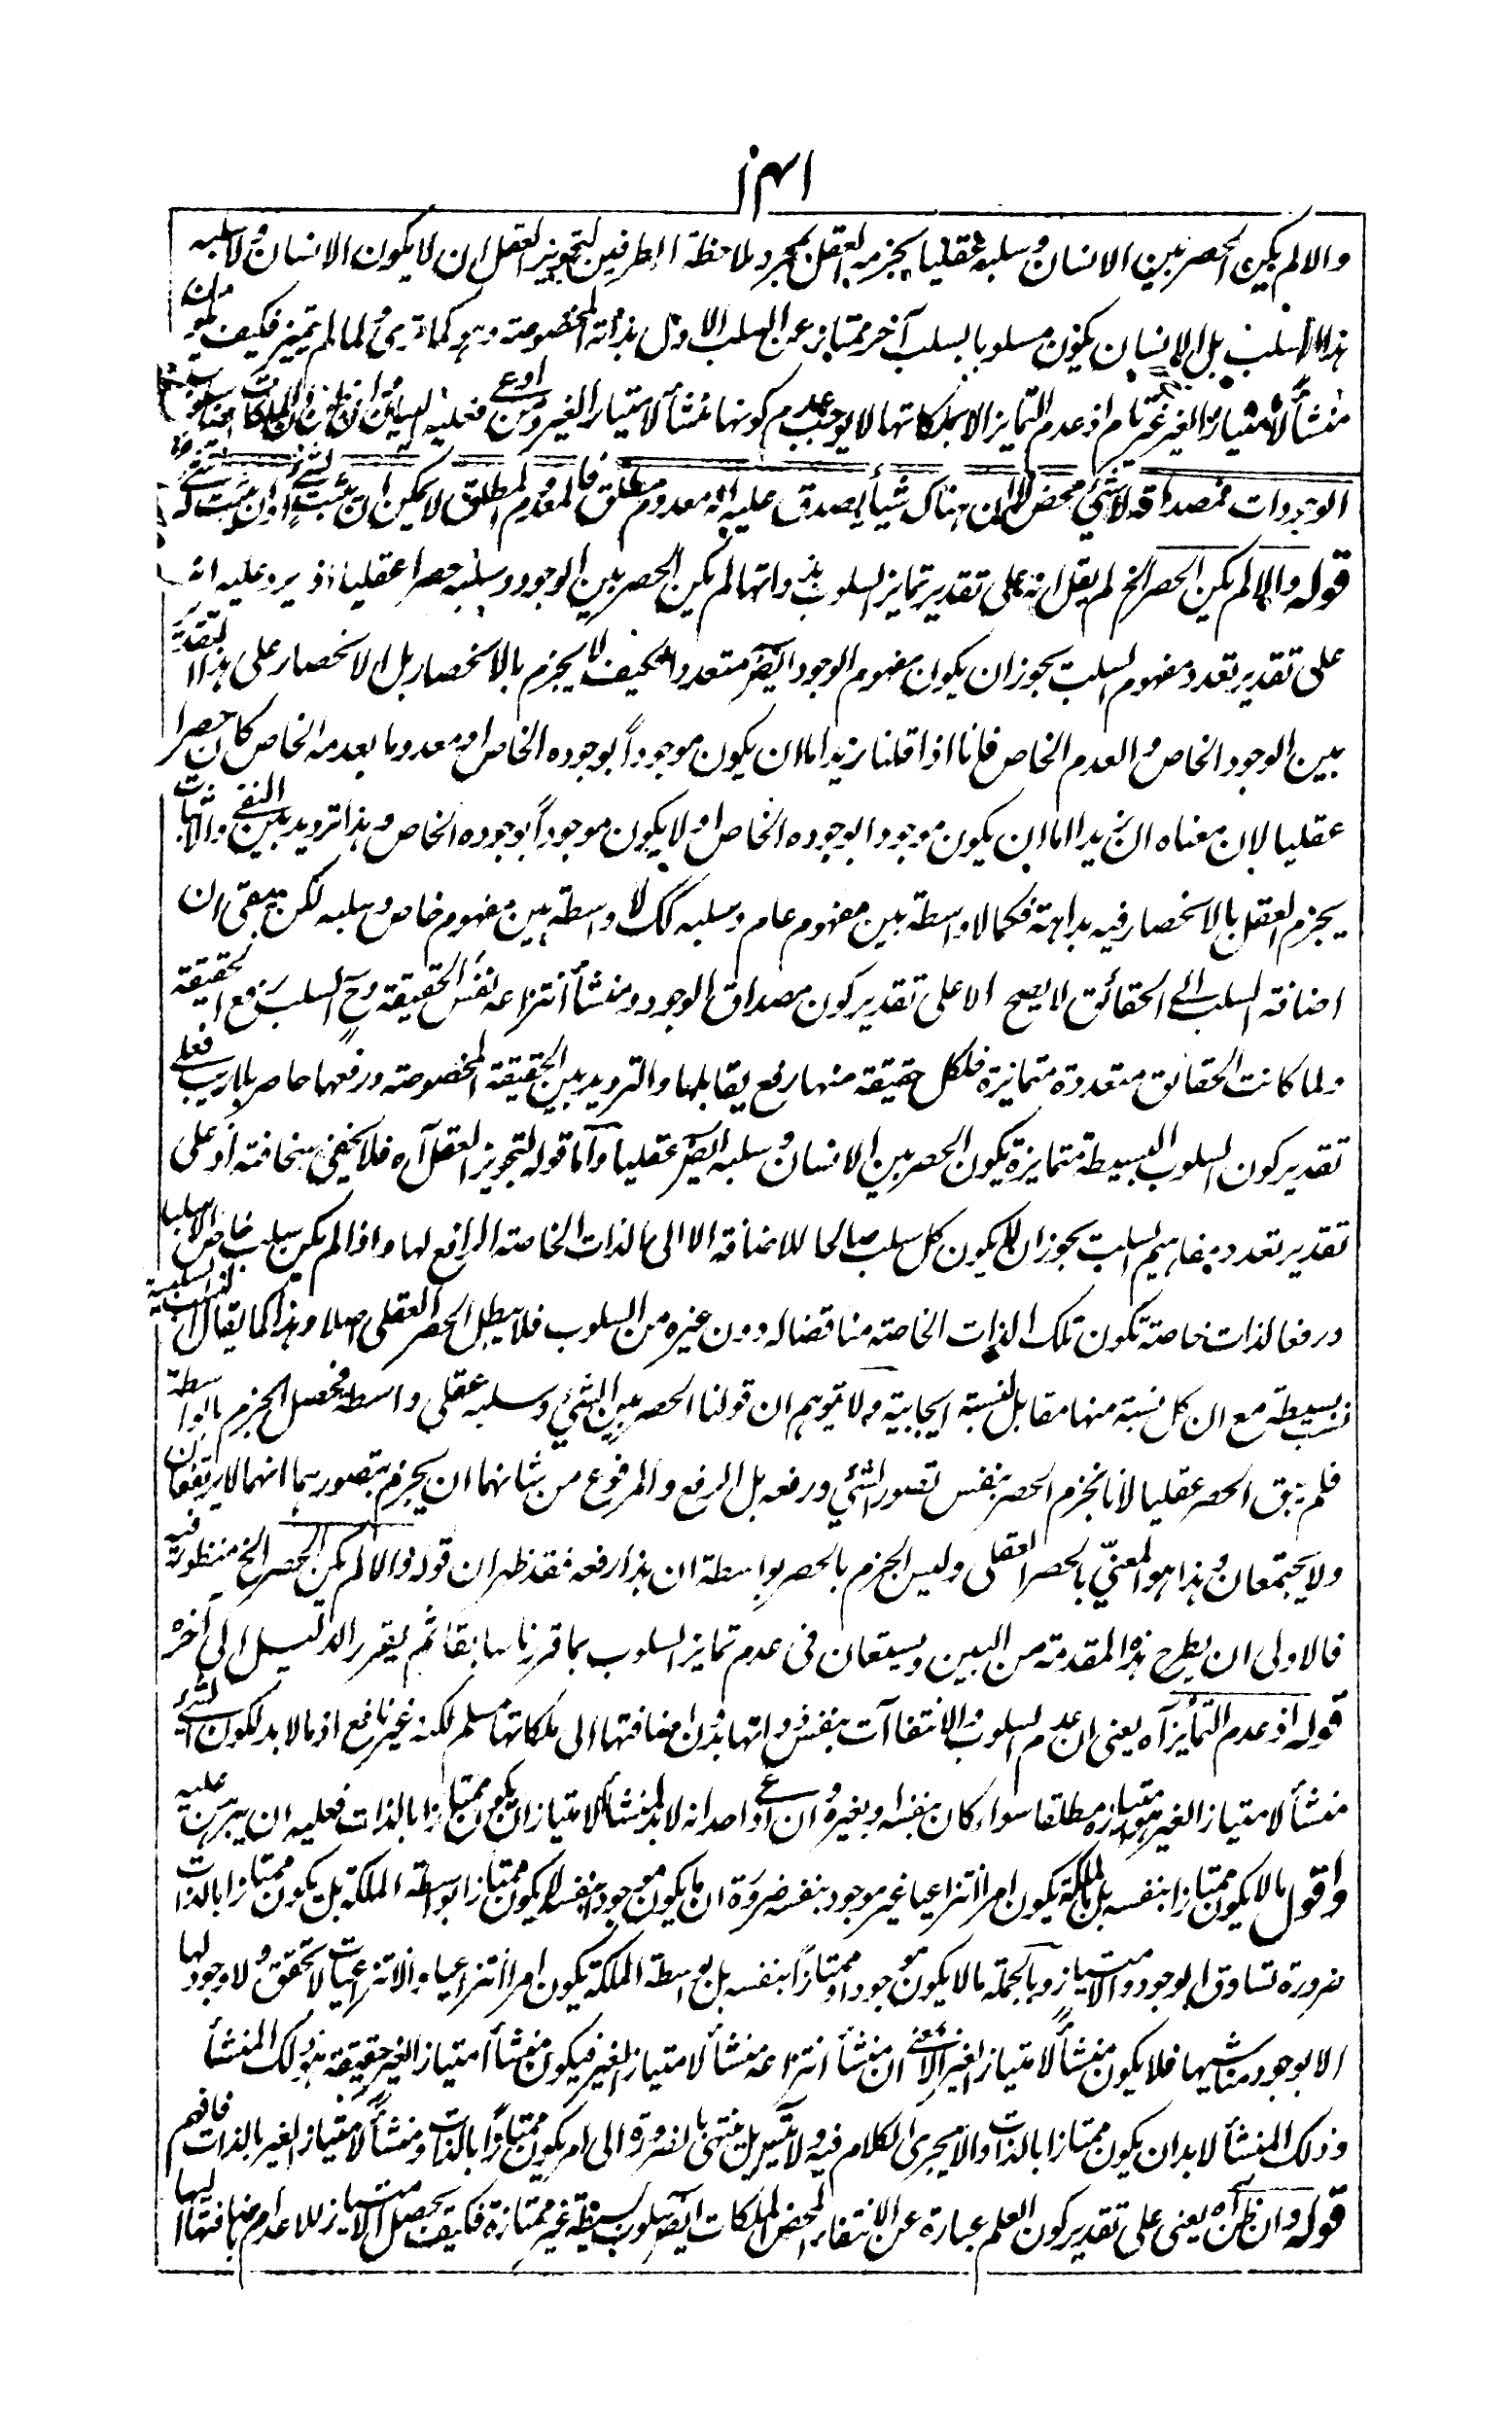 والا لم يكن الحصر بين الانسان وسلبه عقليا يجزم به العقل بمجرد ملاحظة الطرفين لتجويز العقل ان لا يكون الانسان ولا سلبه
هذا السلب بل الانسان يكون مسلوبا بسلب آخر ممتاز عن السلب الاول بذاته المخصوصة وهو كما ترى ولما لم تتميز فكيف
منشأ لامتياز الغير غير تام اذ عدم التمايز الا بملكاتها لا يوجب عدم كونها منشأ لامتياز الغير ومن ادعى فعليه البيان وان ظن ان الملكات
الوجودات فمصداقه لا شيء محض لا ان هناك شيأ يصدق عليه انه معدوم مطلق فالمعدوم المطلق لا يمكن ان يثبت لشيء او ان يثبت له شيء
قوله والا لم يكن الحصر الخ لم يقل انه على تقدير تمايز السلوب بذواتها لم يكن الحصر بين الوجود وسلبه حصرا عقليا اذ يرد عليه انه
على تقدير تعدد مفهوم السلب يجوز ان يكون مفهوم الوجود ايضر متعددا فكيف لا يجزم بالانحصار بل الانحصار على هذا التقدير
بين الوجود الخاص والعدم الخاص فانا اذا قلنا زيد اما ان يكون موجوداً بوجوده الخاص او معدوما بعدمه الخاص كان حصرا
عقليا لان معناه ان زيدا اما ان يكون موجودا بوجوده الخاص او لا يكون موجوداً بوجوده الخاص وهذا ترديد بين النفي والاثبات
يجزم العقل بالانحصار فيه بداهة فكما لا واسطة بين مفهوم عام وسلبه كك لا واسطة بين مفهوم خاص وسلبه لكن يبقى ان
اضافة السلب الى الحقائق لا يصح الا على تقدير كون مصداق الوجود ومنشأ انتزاعه نفس الحقيقة وح السلب رفع الحقيقة
ولما كانت الحقائق متعددة متمايزة فلكل حقيقة منها رفع يقابلها والترديد بين الحقيقة المخصوصة ورفعها حاصر بلا ريب فعلى
تقدير كون السلوب البسيطة متمايزة يكون الحصر بين الانسان وسلبه ايضر عقليا واما قوله لتجويز العقل آه فلا يخفى سخافته اذ على
تقدير تعدد مفاهيم السلب يجوز ان لا يكون كل سلب صالحا للاضافة الا الى الذات الخاصة الرافع لها واذا لم يكن سلب خاص الا سلبا
ورفعا لذات خاصة تكون تلك الذات الخاصة مناقضا له دون غيره من السلوب فلا يبطل الحصر العقلي اصلا وهذا كما يقال ان النسب السلبية
بسيطة مع ان كل نسبة منها مقابل لنسبة ايجابية ولا تتوهم ان قولنا الحصر بين الشيء وسلبه عقلي واسطة فحصل الجزم بالواسطة
فلم يبق الحصر عقليا لانا نجزم الحصر بنفس تصور الشيء ورفعه بل الرفع والمرفوع من شانهما ان يجزم بتصورهما انهما لا يرتفعان
ولا يجتمعان وهذا هو المعنيّ بالحصر العقلي وليس الجزم بالحصر بواسطة ان هذا رفعه فقد ظهر ان قوله والا لم يكن الحصر الخ منظور فيه
فالاولى ان يطرح هذه المقدمة من البين ويستعان في عدم تمايز السلوب بما قررنا سابقا ثم يقرر الدليل الى آخره
قوله اذ عدم التمايز آه يعني ان عدم السلوب والانتفاآت بنفس ذواتها بدون اضافتها الى ملكاتها مسلم لكنه غير نافع اذ ما لا بد لكون الشيء
منشأ لامتياز الغير هو امتيازه مطلقا سواء كان بنفسه او بغيره وان ادعى احد انه لا بد لمنشأ الامتياز ان يكون ممتازا بالذات فعليه ان يبرهن عليه
واقول ما لا يكون ممتازا بنفسه بل بالملكة يكون امرا انتزاعيا غير موجود بنفسه ضرورة ان ما يكون موجودا بنفسه لا يكون ممتازا بواسطة الملكة بل يكون ممتازا بالذات
ضرورة تساوق الوجود والامتياز وبالجملة ما لا يكون موجودا وممتازاً بنفسه بل بواسطة الملكة يكون امرا انتزاعيا والانتزاعيات لا تحقق ولا وجود لها
الا بوجود مناشيها فلا يكون منشأً لامتياز الغير الا بمعنى ان منشأ انتزاعه منشأ لامتياز الغير فيكون منشأ امتياز الغير حقيقة هو ذلك المنشأ
وذلك المنشأ لا بد ان يكون ممتازا بالذات والا يجري الكلام فيه ولا يتسل بل ينتهي بالضرورة الى امر يكون ممتازاً بالذات ومنشأ لامتياز الغير بالذات فافهم
قوله وان ظن آه يعني على تقدير كون العلم عبارة عن الانتفاء المحض الملكات ايضر سلوب بسيطة غير ممتازة فكيف يحصل الامتياز للاعدام باضافتها اليها